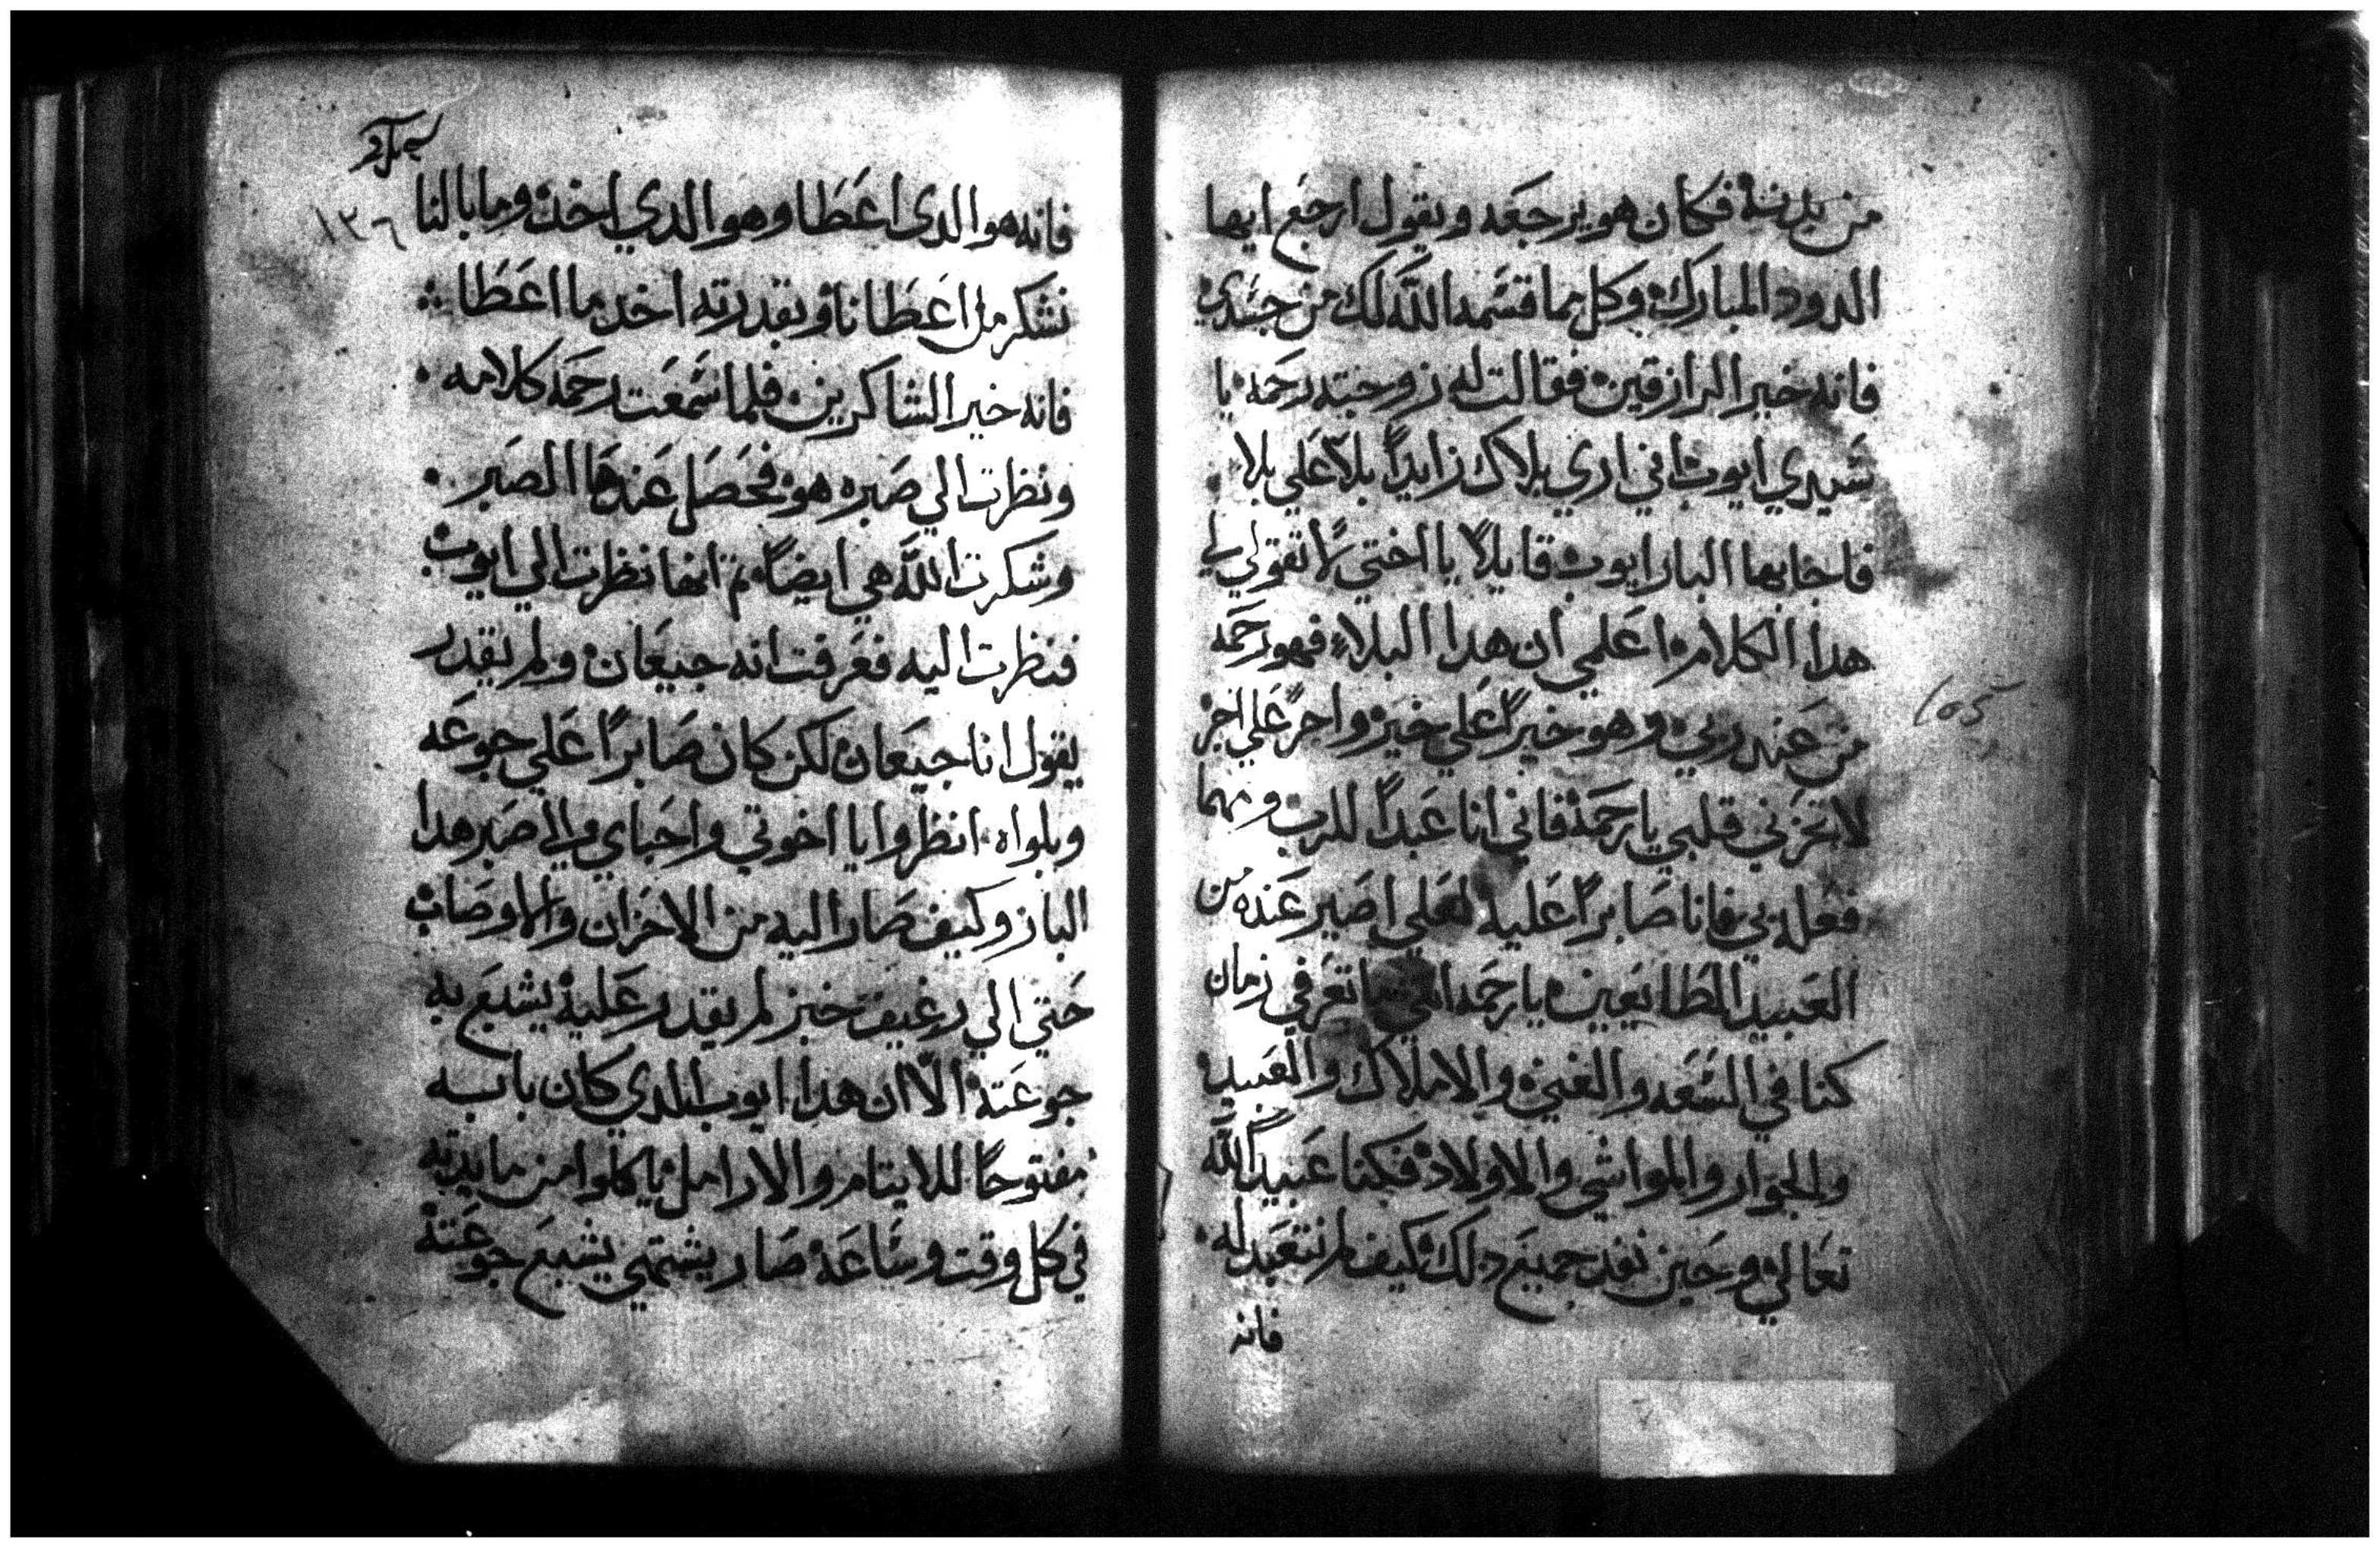 من بدنه فكان هو يرجعه ويقول ارجع ايها
الدود المبارك وكل مما قسمه الله لك من جسدي
فانه خير الرازقين فقالت له زوجته رحمه يا
سيدي ايوب اني اري بلاك زايداً بلاً علي بلاءٍ
فاجابها البار ايوب قايلاً يا اختي لا تقولي لي
هدا الكلام اعلمي ان هدا البلاء فهو رحمه
من عند ربي وهو خيراً علي خير واجراً علي اجر
لا تحزني قلبي يا رحمة فاني انا عبداً للرب ومهما
فعله بي فانا صابراً عليه لعلي اصير عنده من
العبيد الطايعين يا رحمه تعرفي زمان
كنا في السعه والغني والاملاك والعبيد
والجوار والمواشي والاولاد فكنا عبيداً لله
تعالي وحين نفد جميع دلك كيف لم نتعبد له
فانه
105
١٣٦
فانه هو الدى اعطا وهو الدي اخد وما بالنا
نشكر من اعطانا وبقدرته اخد ما اعطا
فانه خير الشاكرين فلما سمعت رحمه كلامه
ونظرت الي صبره هو فحصل عندها الصبر
وشكرت الله هي ايضاً ثم انها نظرت الي ايوب
فنظرت اليه فعرفت انه جيعان ولم يقدر
يقول انا جيعان لكن كان صابراً علي جوعه
وبلواه انظروا يا اخوتي واحباي الي صبر هدا
البار وكيف صار اليه من الاحزان والاوصاب
حتي الي رغيف خبز لم يقدر عليه يشبع به
جوعته الا ان هدا ايوب الدي كان بابه
مفتوحاً للايتام والارامل ياكلوا من مايدته
في كل وقت وساعة صار يشتهي يشبع جوعته